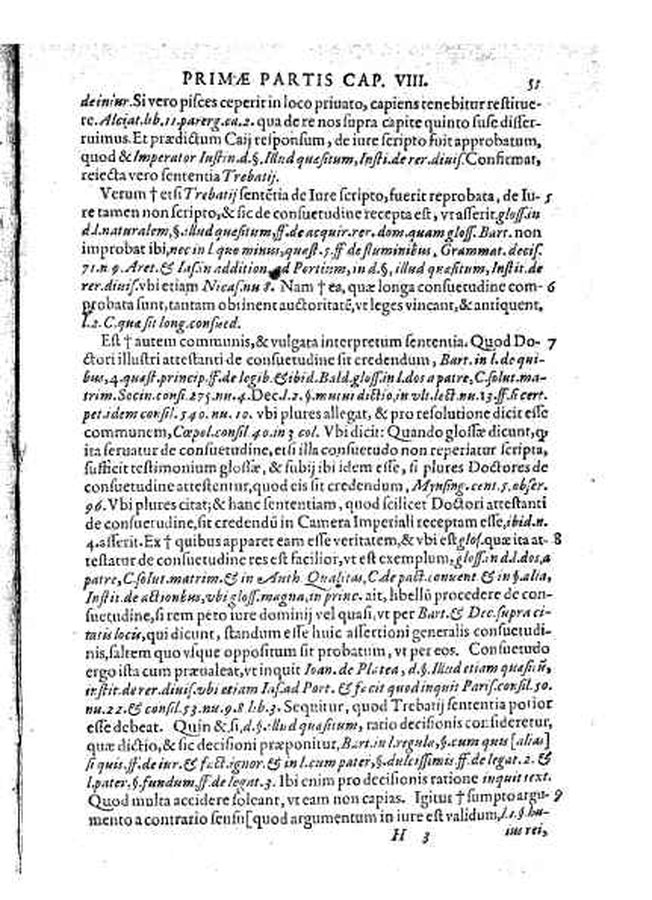 PRIMÆ PARTIS CAP. VIII. 51
de iniur. Si vero pisces ceperit in loco priuato, capiens tenebitur restitue-
re. Alciat. lib. 11. parerg. ca. 2. qua de re nos supra capite quinto fuse disser-
ruimus. Et prædictum Caij responsum, de iure scripto fuit approbatum,
quod & Imperator Iustin. d. §. Illud quæsitum, Insti. de rer. diuis. Confirmat,
reiecta vero sententia Trebatij.
Verum † etsi Trebatij sentẽtia de Iure scripto, fuerit reprobata, de Iu- 5
re tamen non scripto, & sic de consuetudine recepta est, vt asserit. gloss. in
d. l. naturalem, §. illud quæsitum, ff. de acquir. rer. dom. quam gloss. Bart. non
improbat ibi, nec in l. quo minus, quæst. 5. ff. de fluminibus, Grammat. decis.
71. n. 9. Aret. & Ias. in addition. ad Portium, in d. §, illud quæsitum, Instit. de
rer. diuis. vbi etiam Nicas. nu 8. Nam † ea, quæ longa consuetudine com- 6
probata sunt, tantam obtinent auctoritatẽ, vt leges vincant, & antiquent,
l. 2. C. quæ sit long. consued.
Est † autem communis, & vulgata interpretum sententia. Quod Do- 7
ctori illustri attestanti de consuetudine sit credendum, Bart. in l. de qui-
bus, 4. quæst. princip. ff. de legib. & ibid. Bald. gloss. in l. dos a patre, C. solut. ma-
trim. Socin. consi. 275. nu. 4. Dec. l. 2. §. mutui dictio, in vlt. lect. nu. 13. ff. si cert.
pet. idem consil. 540. nu. 10. vbi plures allegat, & pro resolutione dicit esse
communem, Cæpol. consil. 40. in 3 col. Vbi dicit: Quando glossæ dicunt, ꝙ
ita seruatur de consuetudine, etsi illa consuetudo non reperiatur scripta,
sufficit testimonium glossæ, & subij ibi idem esse, si plures Doctores de
consuetudine attestentur, quod eis sit credendum, Mynsing. cent. 5. obser.
96. Vbi plures citat; & hanc sententiam, quod scilicet Doctori attestanti
de consuetudine, sit credendũ in Camera Imperiali receptam esse, ibid. n.
4. asserit. Ex † quibus apparet eam esse veritatem, & vbi est glos. quæ ita at- 8
testatur de consuetudine res est facilior, vt est exemplum, gloss. in d. l. dos, a
patre, C. solut. matrim. & in Auth. Qualitas, C. de pact. conuent. & in §. alia,
Instit. de actionibus, vbi gloss. magna, in princ. ait, libellũ procedere de con-
suetudine, si rem peto iure dominij vel quasi, vt per Bart. & Dec. supra ci-
tatis locis, qui dicunt, standum esse huic assertioni generalis consuetudi-
nis, saltem quo vsque oppositum sit probatum, vt per eos. Consuetudo
ergo ista cum præualeat, vt inquit Ioan. de Platea, d. §. Illud etiam quæsitũ,
instit. de rer. diuis. vbi etiam Ias. ad Port. & fecit quod inquit Paris. consil. 50.
nu. 22. & consil. 53. nu. 9. 8 lib. 3. Sequitur, quod Trebatij sententia potior
esse debeat. Quin & si, d. §. illud quæsitum, ratio decisionis consideretur,
quæ dictio, & sic decisioni præponitur, Bart. in l. regula, §. cum quis [alias]
si quis, ff. de iur. & fact. ignor. & in l. cum pater, §. dulcissimis. ff. de legat. 2. &
l. pater. §. fundum, ff. de legat. 3. Ibi enim pro decisionis ratione inquit text.
Quod multa accidere soleant, vt eam non capias. Igitur † sumpto argu- 9
mento a contrario sensu [quod argumentum in iure est validum, l. 1. §. hu-
H 3 ius rei,